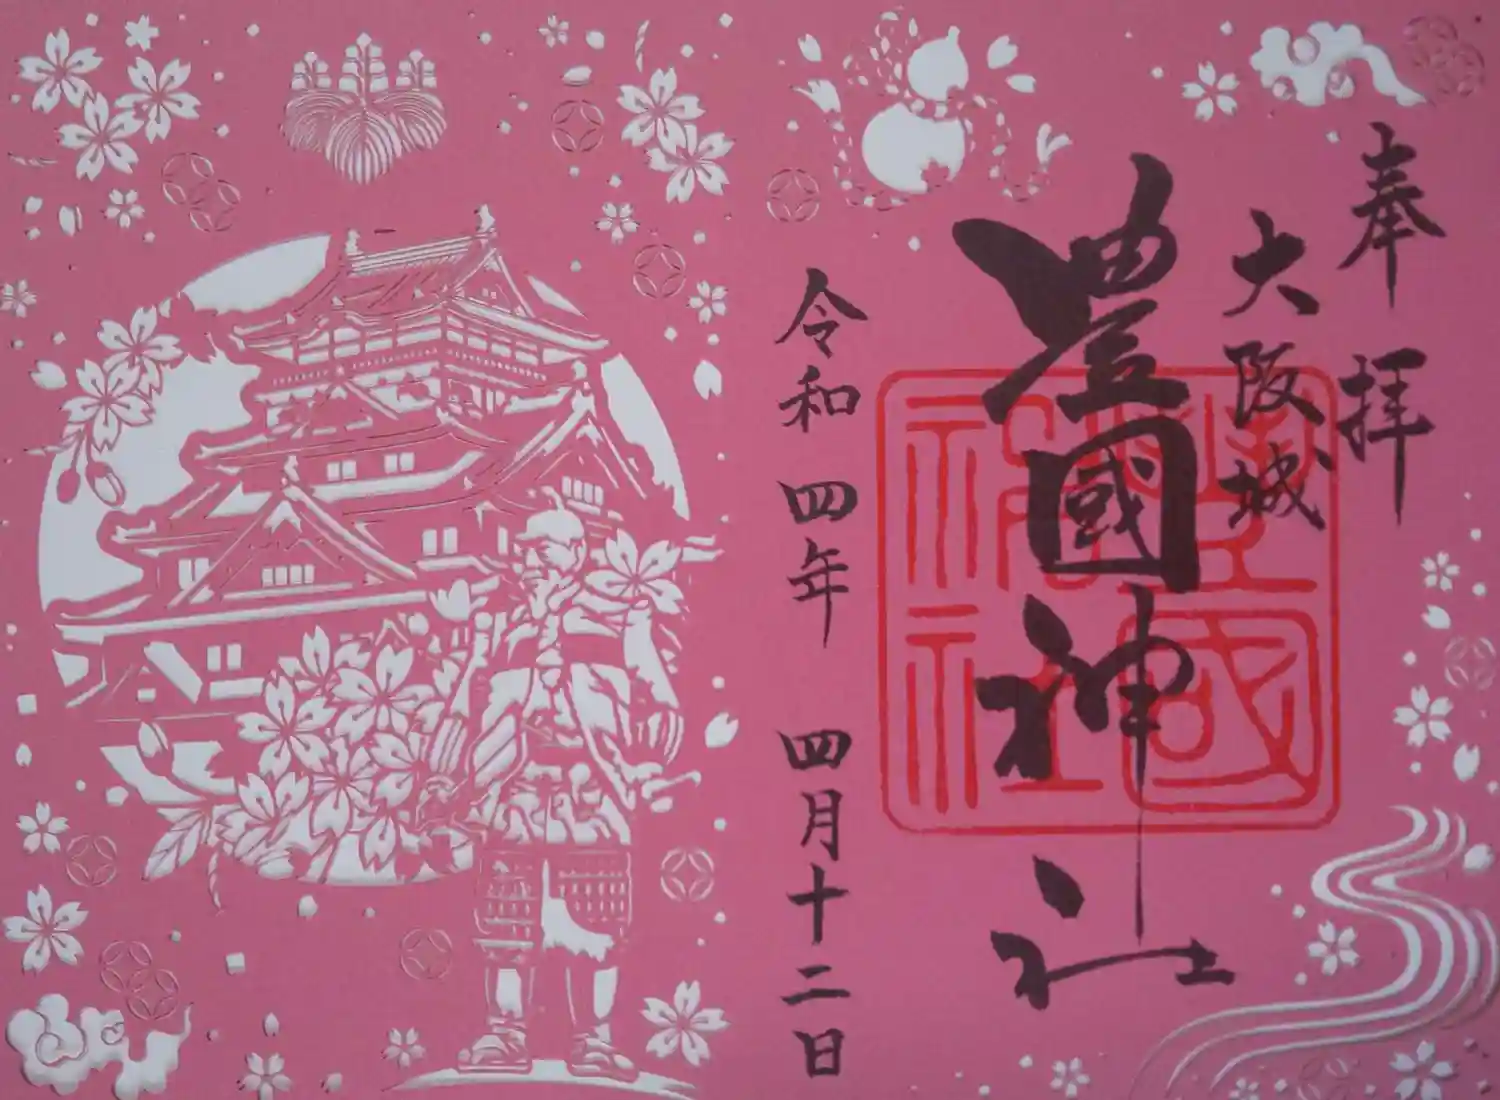 奉拝
大阪城
豊國神社
令和四年四月十二日
豊國神社